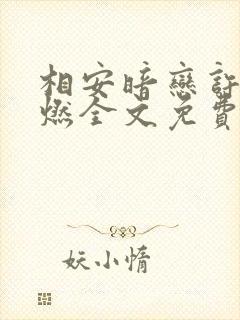 相安暗戀許
燃全文免費
妖小惰